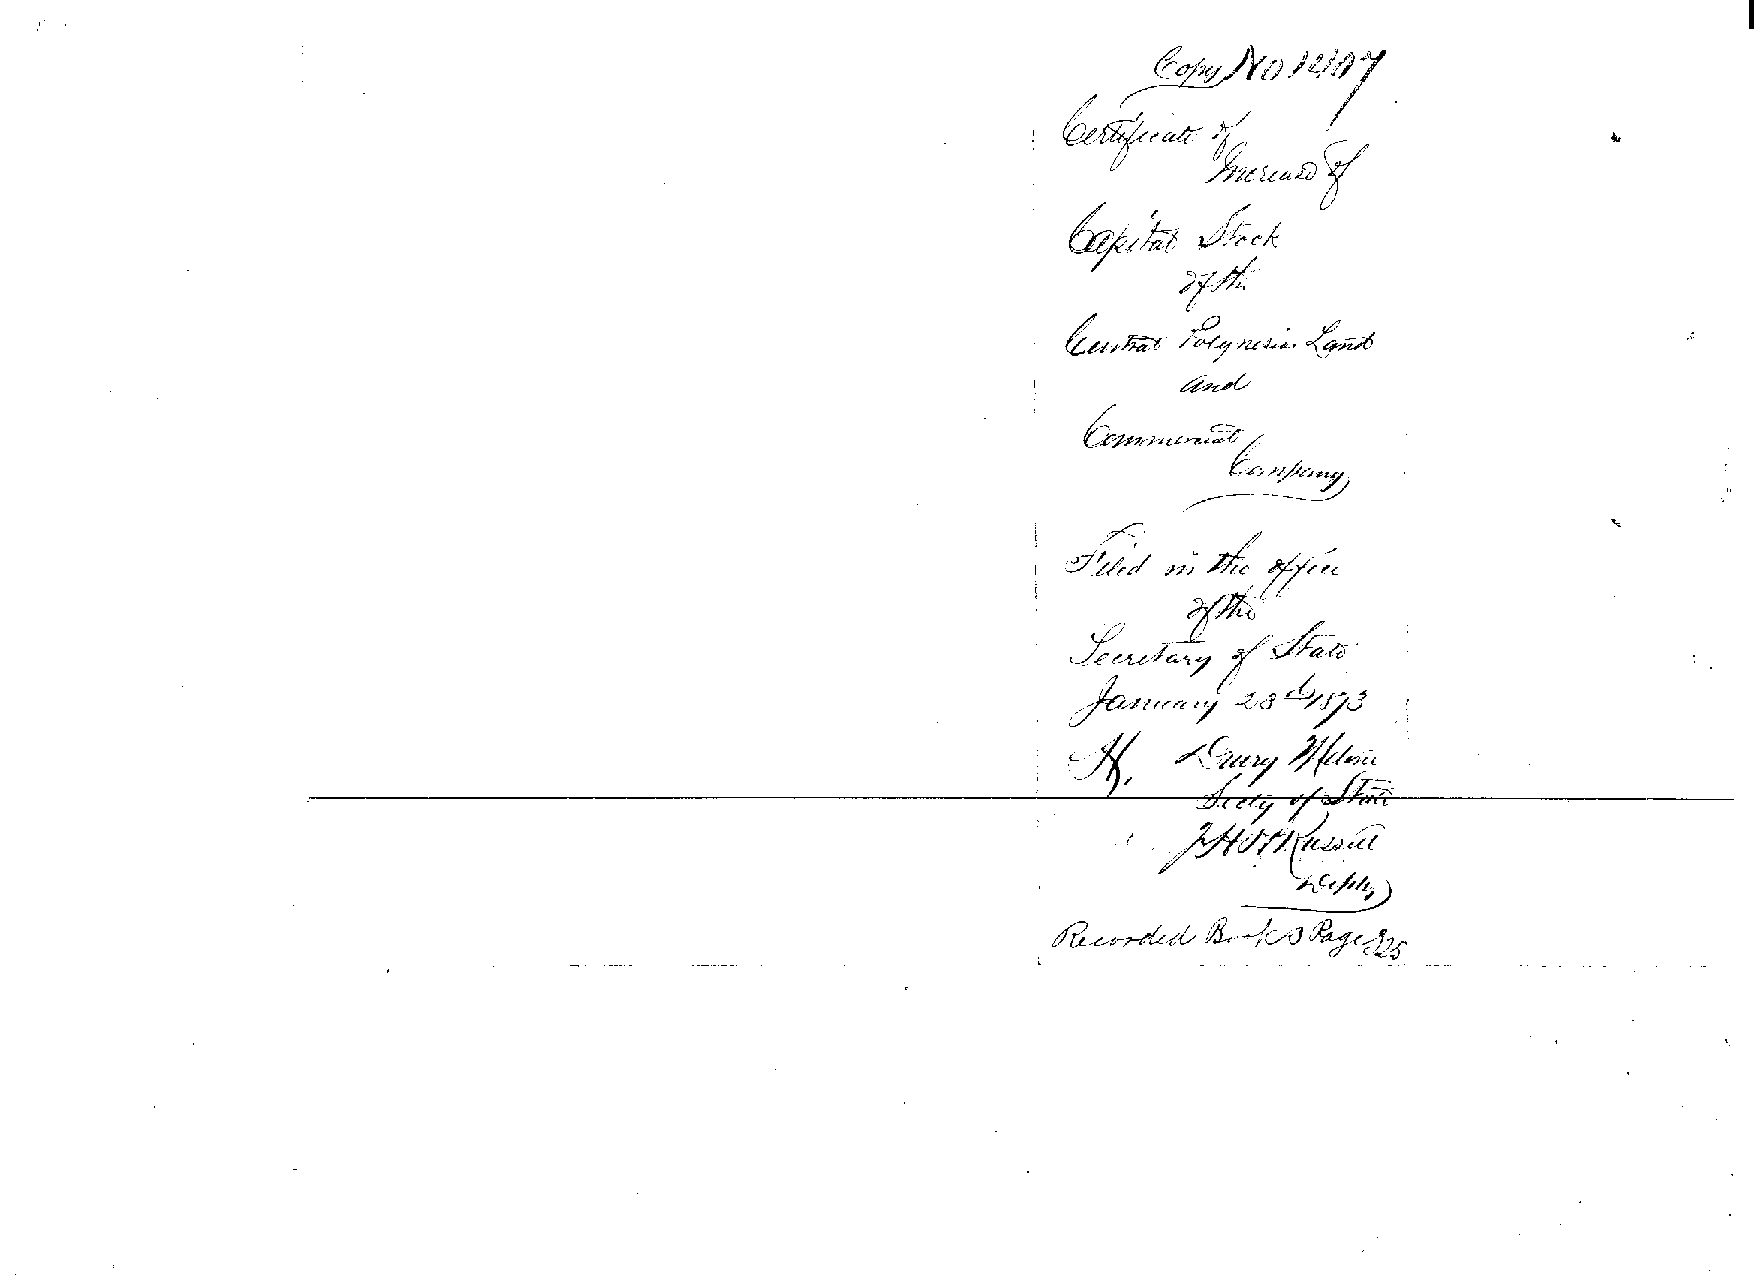 Copy No 12107
Certificate of
Increase of
Capital Stock
of the
Central Polynesia Land
and
Commercial
Company
Filed in the office
of the
Secretary of State
January 23d 1873
Drury Melone
Secty of State
Russell
Depty
Recorded Book 3 Page 325